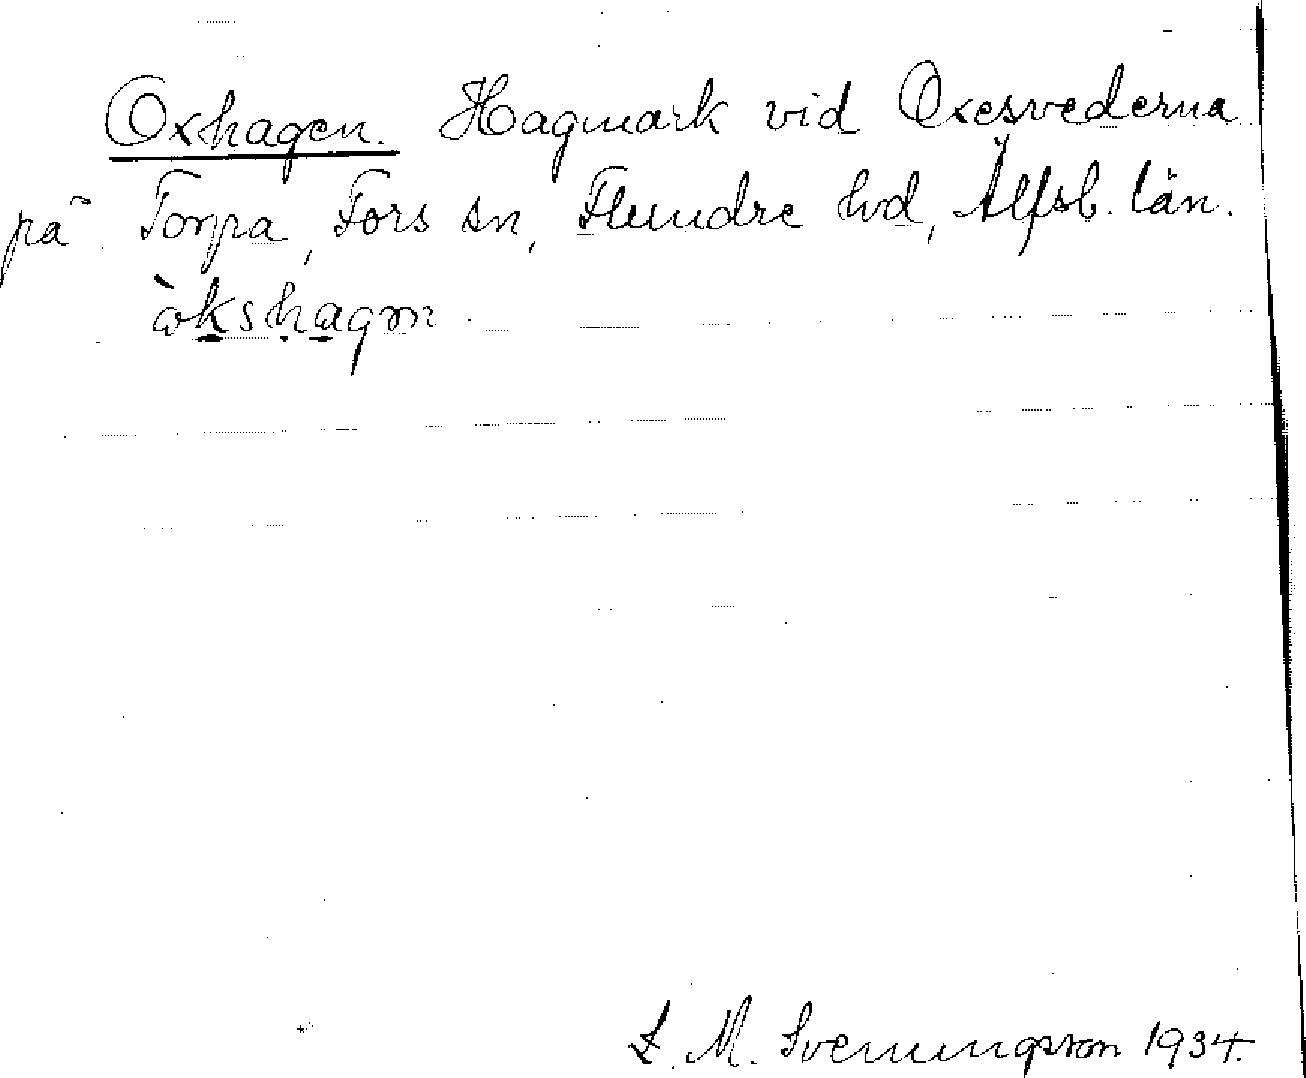 Oxhagen. Hagmark vid Oxesvederna
på Torpa, Fors sn, Flundre hd, Älfsb. län.
òkshagǝn.
F. M. Svenungsson 1934.